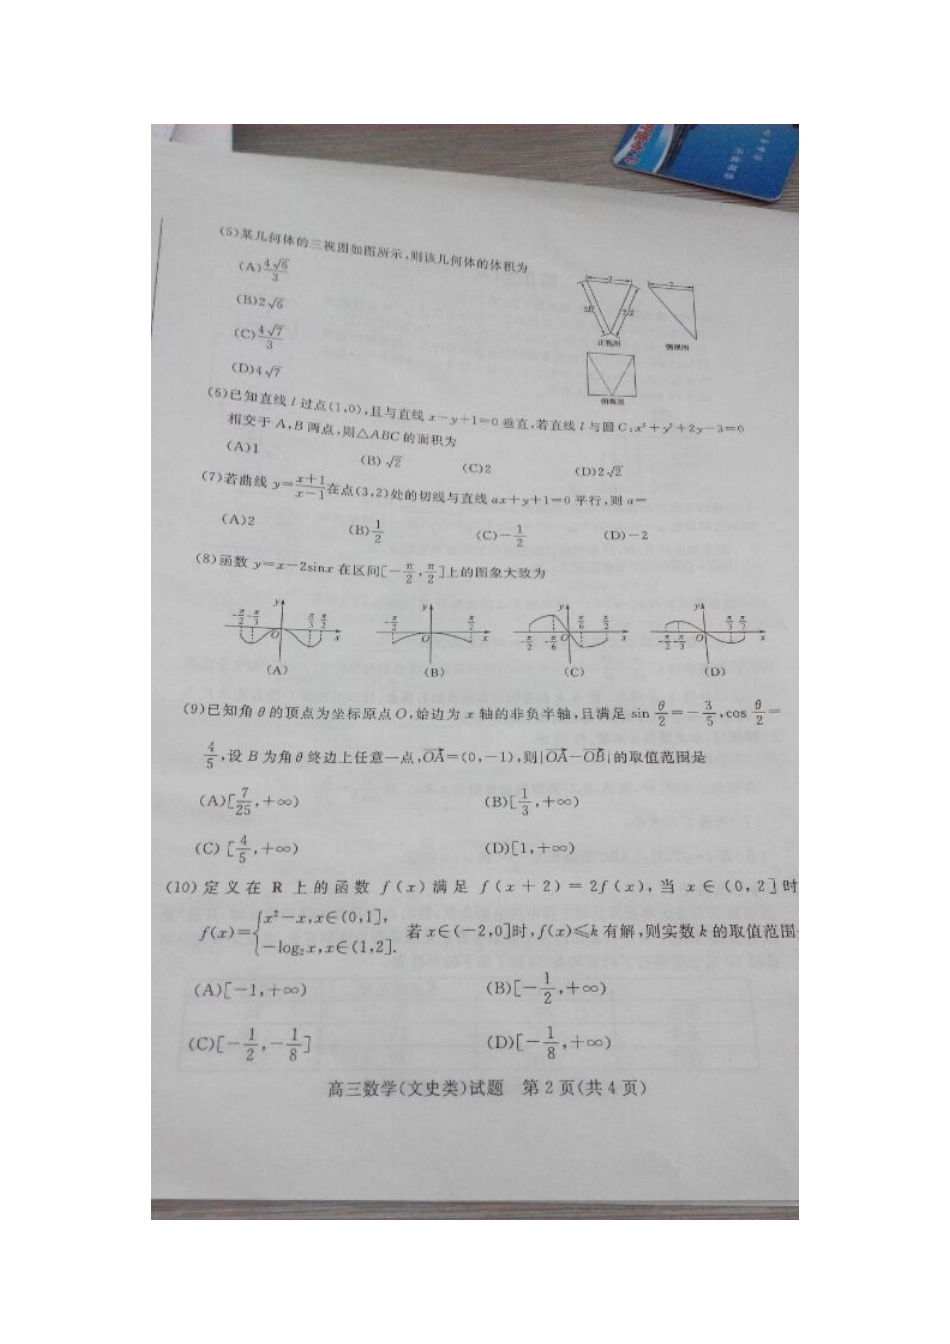 (5)某几何体的三视图如图所示,则该几何体的体积为
(A)4√6/3
(B)2√6
(C)4√7/3
(D)4√7
正视图
侧视图
俯视图
(6)已知直线 l 过点(1,0),且与直线 x-y+1=0 垂直,若直线 l 与圆 C:x²+y²+2y-3=0
相交于 A,B 两点,则△ABC 的面积为
(A)1 (B)√2 (C)2 (D)2√2
(7)若曲线 y=(x+1)/(x-1)在点(3,2)处的切线与直线 ax+y+1=0 平行,则 a=
(A)2 (B)1/2 (C)-1/2 (D)-2
(8)函数 y=x-2sinx 在区间[-π/2,π/2]上的图象大致为
(A) (B) (C) (D)
(9)已知角 θ 的顶点为坐标原点 O,始边为 x 轴的非负半轴,且满足 sin θ/2=-3/5,cos θ/2=
4/5,设 B 为角 θ 终边上任意一点,OA=(0,-1),则|OA-OB|的取值范围是
(A)[7/25,+∞) (B)[1/3,+∞)
(C)[4/5,+∞) (D)[1,+∞)
(10)定义在 R 上的函数 f(x)满足 f(x+2)=2f(x),当 x∈(0,2]时
f(x)={x²-x,x∈(0,1],
-log₂x,x∈(1,2].
若 x∈(-2,0]时,f(x)≤k 有解,则实数 k 的取值范围
(A)[-1,+∞) (B)[-1/2,+∞)
(C)[-1/2,-1/8] (D)[-1/8,+∞)
高三数学(文史类)试题 第 2 页(共 4 页)